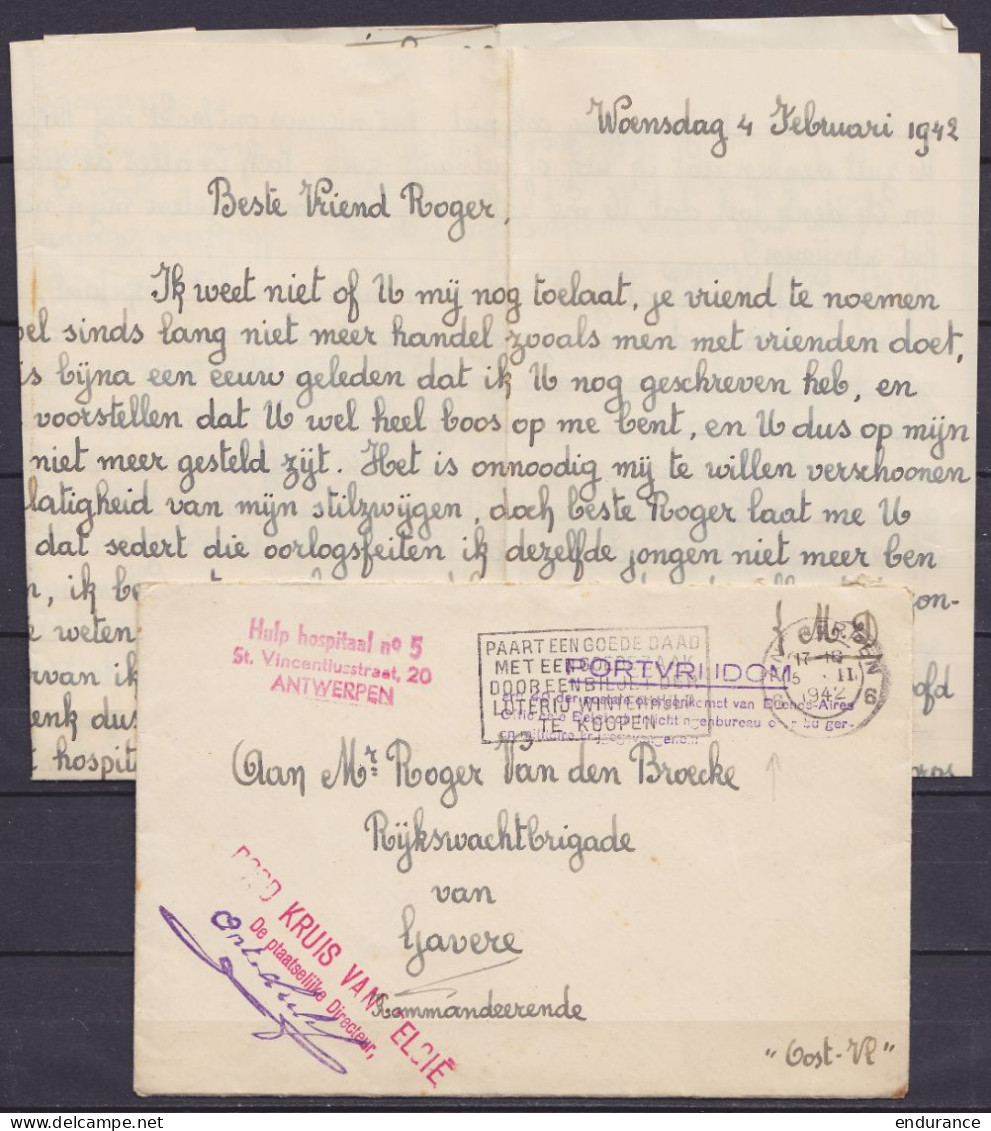 Woensdag 4 Februari 1942
Beste Vriend Roger,
Ik weet niet of U mij nog toelaat, je vriend te noemen
sinds lang niet meer handel zooals men met vrienden doet,
bijna een eeuw geleden dat ik U nog geschreven heb, en
voorstellen dat U wel heel boos op me bent, en U dus op mijn
niet meer gesteld zijt. Het is onnoodig mij te willen verschoonen
latigheid van mijn stilzwijgen, doch beste Roger laat me U
dat sedert die oorlogsfeiten ik dezelfde jongen niet meer ben
ik
weten
rvan ik
enk dus
hospit
Hulp hospitaal nº 5
St. Vincentiusstraat, 20
ANTWERPEN
PAART EEN GOEDE DAAD
MET EEN
DOOR EEN BILJET DER
LOTERIJ WINTERHULP
TE KOOPEN
PORTVRIJDOM
der postale overeenkomst van Buenos-Aires
17-18
II
1942
6
Aan Mr. Roger Van den Broecke
Rijkswachtbrigade
van
Gavere
Kommandeerende
"Oost-Vl"
ROOD KRUIS VAN BELGIË
De plaatselijke Directeur,
endurance